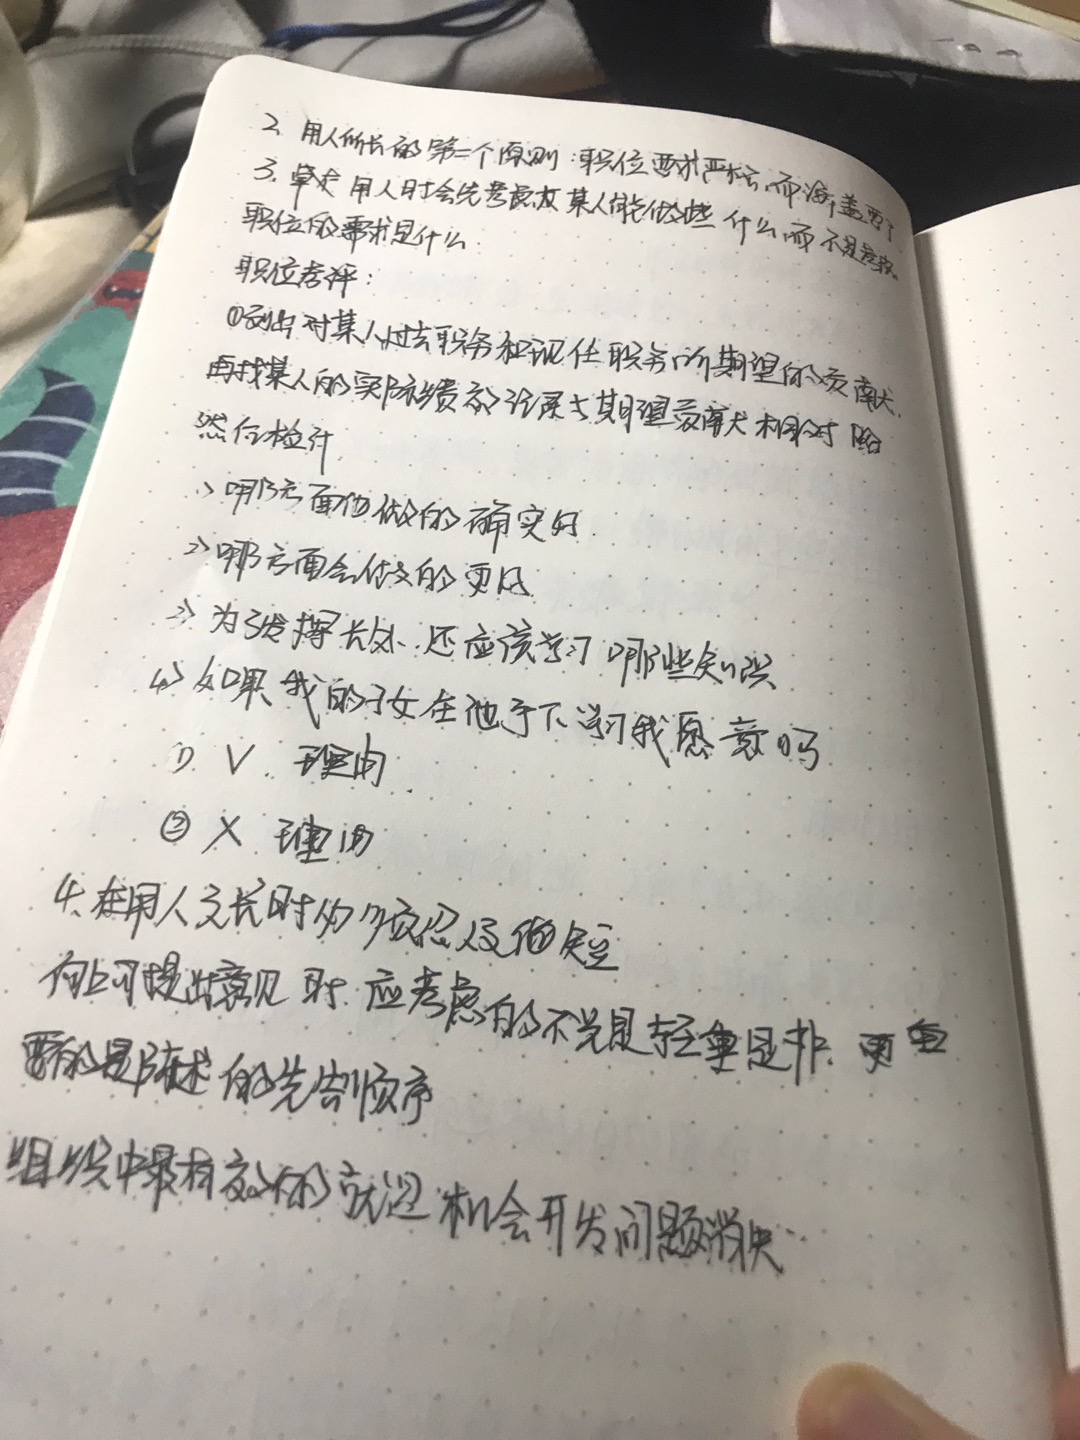 2、用人所长的第二个原则：职位要求严格，而涵盖要广
3、卓越 用人时会先考虑 某人能做些什么，而不是考虑
职位的需求是什么
职位考评：
①列出对某人过去职务和现任职务所期望的贡献，
再找某人的实际绩效记录与期望贡献相对照
然后检讨
1> 哪方面他做的确实好
2> 哪方面会做的更好
3> 为发挥长处，还应该学习哪些知识
4> 如果我的子女在他手下学习我愿意吗
① V 理由
② X 理由
4、在用人之长时必须忍人之所短
向上司提出意见时，应考虑的不光是轻重是非，更重
要的是陈述的先后顺序
组织中最有效的就是机会开发问题消失